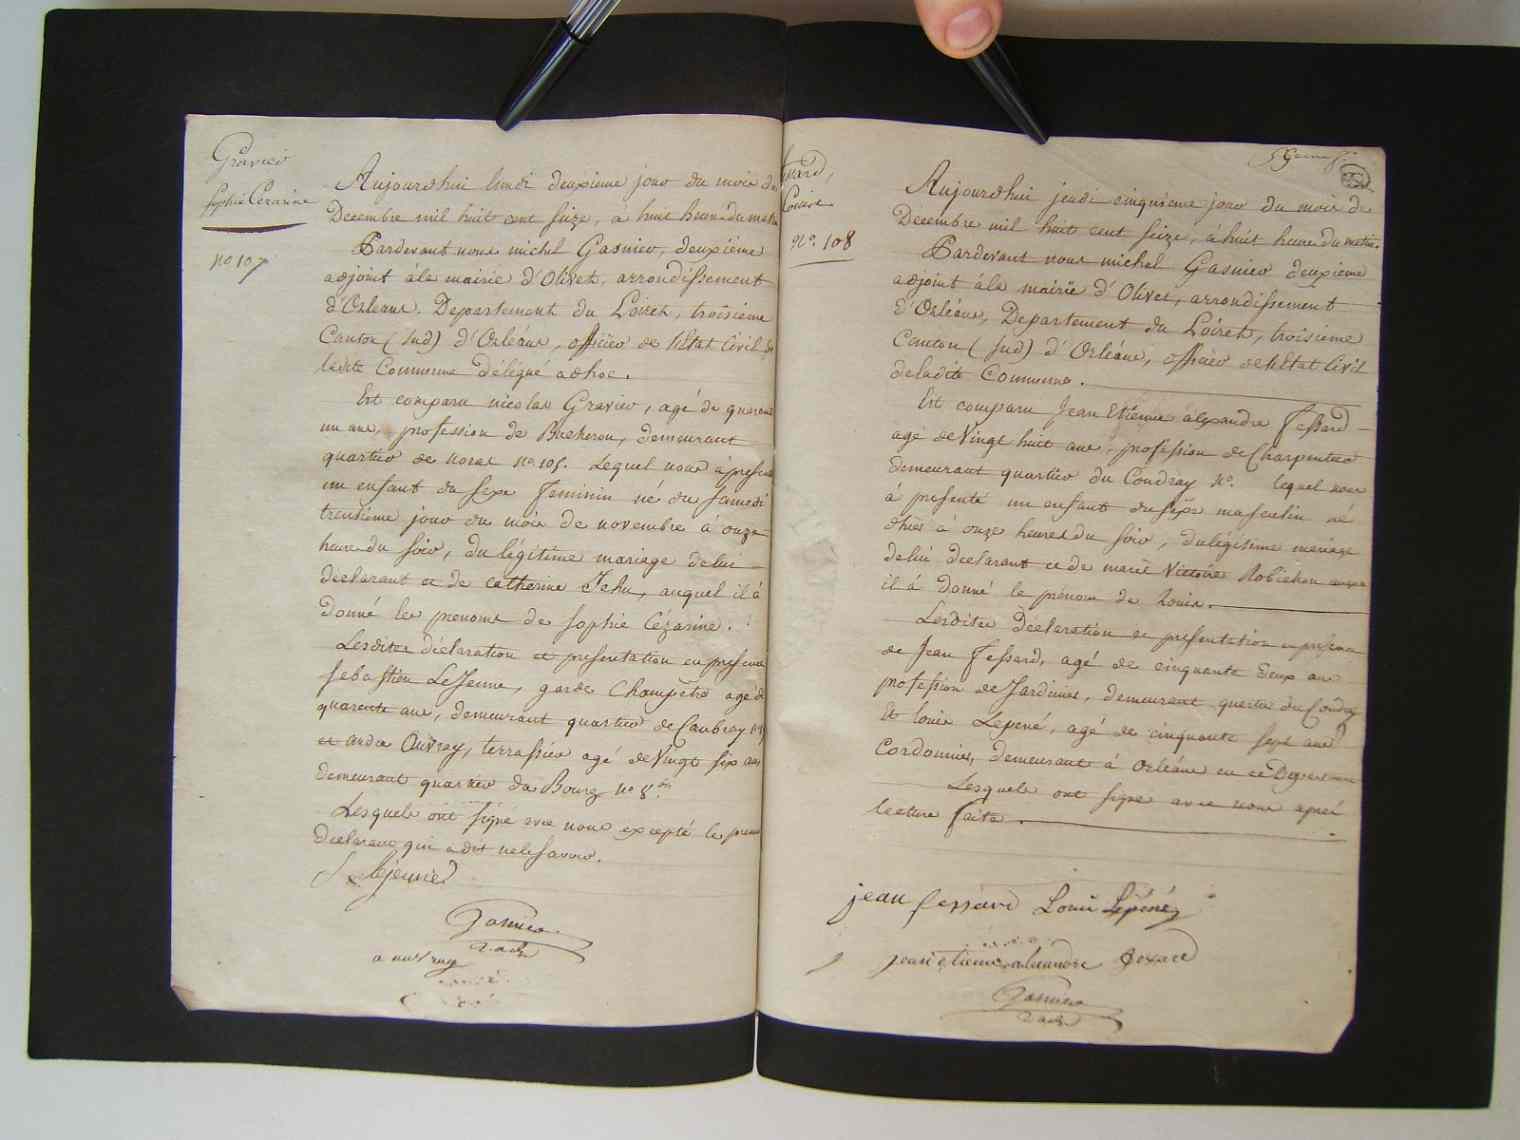 Gravier
Sophie Cézarine
no 107
Aujourdhui lundi deuxieme jour du mois de
Decembre mil huit cent seize, à huit heures du matin
Pardevant nous michel Gasnier, deuxième
adjoint àla mairie d'Olivet, arrondissement
d'Orleans. Departement du Loiret, troisieme
Canton (sud) d'Orléans, officier de l'Etat Civil de
ladite Commune délégué adhoc.
Est comparu nicolas Gravier, agé de quarante
un ans, profession de Bucheron, demeurant
quartier de noras no 105. Lequel nous à presenté
un enfant du sexe feminin né du samedi
trentième jour du mois de novembre à onze
heures du soir, du légitime mariage de lui
déclarant et de catherine Jehu, auquel il à
donné les prenoms de sophie Cézarine.
Lesdites déclaration et presentation en presence
sebastien LeJeune, garde champêtre agé de
quarante ans, demeurant quartier de Caubray no
et andré Auvray, terrassier agé de Vingt six ans
demeurant quartier du Bourg no 8.
Lesquels ont signé avec nous excepté le premier
déclarant qui a dit nele savoir.
S Lejeune
Gasnier
2.adj
a auvray
Louis
no. 108
Aujourdhui jeudi cinquième jour du mois de
Décembre mil huit cent seize, à huit heure du matin.
Pardevant nous michel Gasnier deuxieme
adjoint àla mairie d'Olivet, arrondissement
d'Orléans, Departement du Loiret, troisieme
Canton (sud) d'Orléans, officier de l'Etat Civil
deladite Commune.
Est comparu Jean Etienne alexandre fessard
agé de Vingt huit ans, profession de Charpentier
demeurant quartier du Coudray No. lequel nous
à presenté un enfant du sexe masculin né
d'hier à onze heures du soir, du légitime mariage
de lui déclarant et de marie Victoire Robichon auquel
il à donné le prénom de Louis.
Lesdites déclaration et presentation en presence
de Jean fessard, agé de cinquante deux ans
profession de Jardinier, demeurant quartier du Coudray
Et louis Lepené, agé de cinquante sept ans
Cordonnier, demeurant à Orléans en ce Departement
Lesquels ont signé avec nous aprés
lecture faite.
jean fessard Louis Lepené
jean etienne alexandre
Gasnier
2 adj